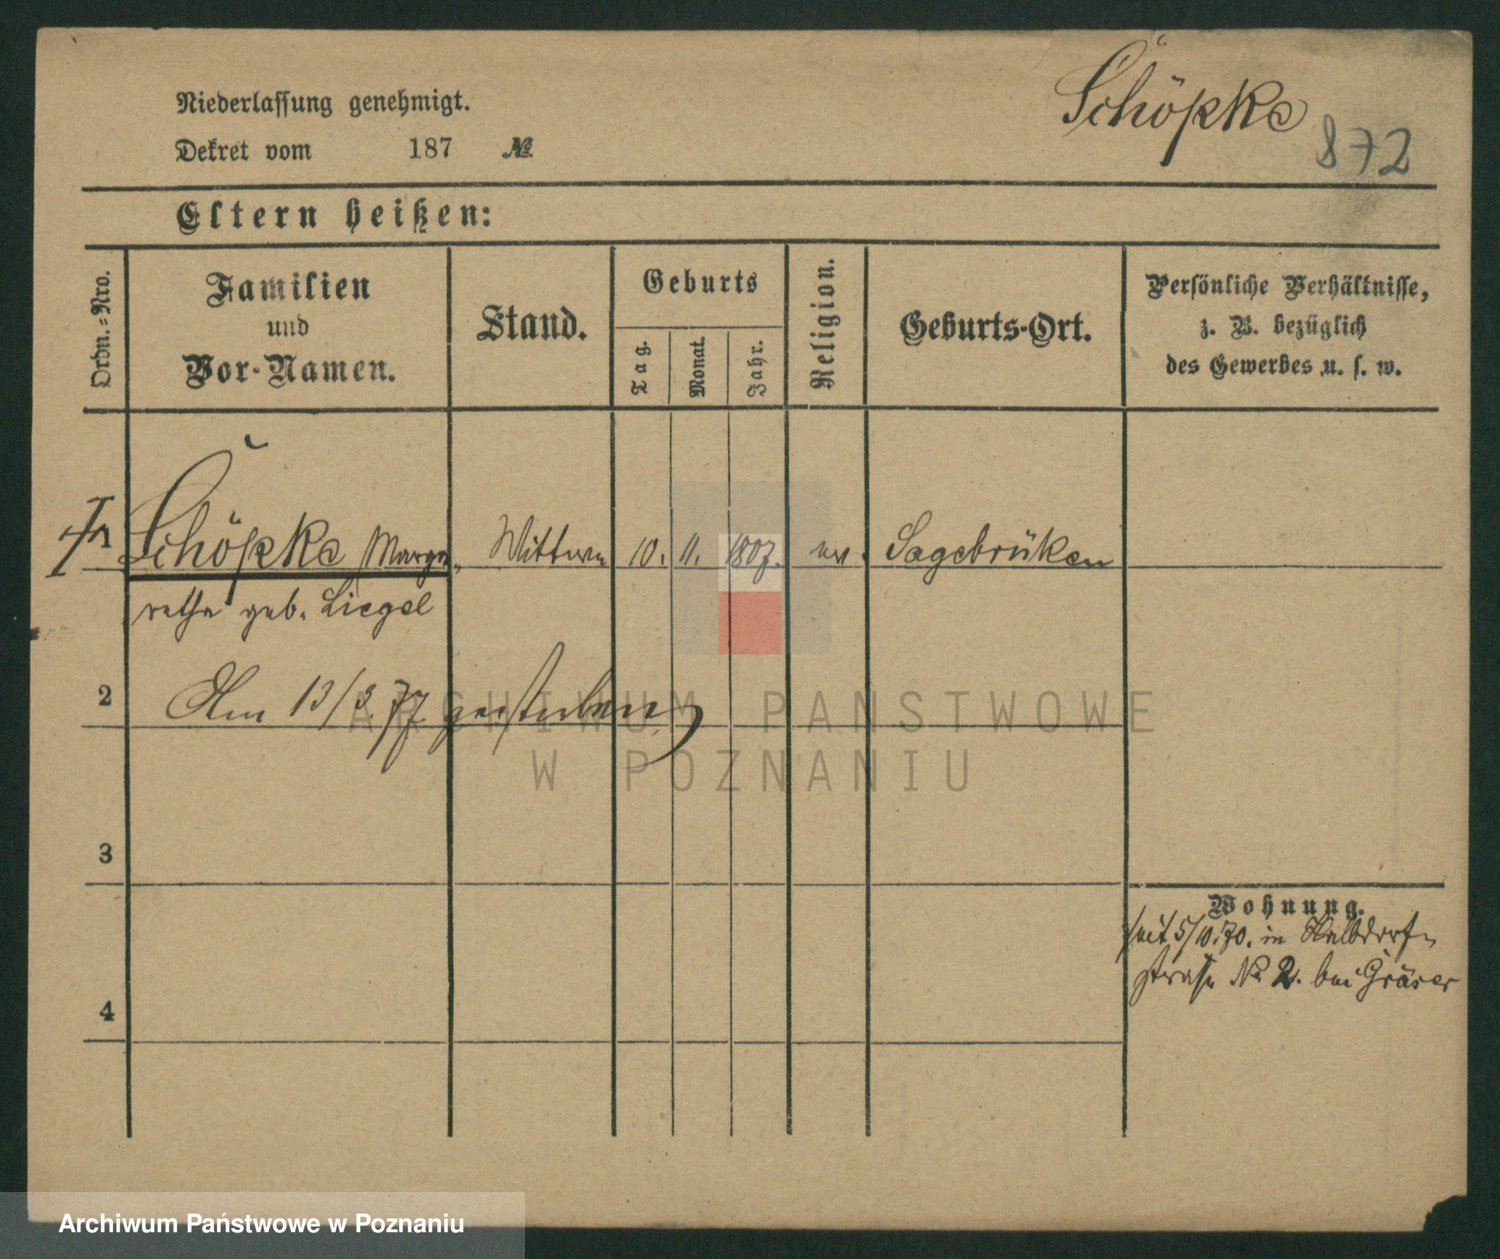 Niederlassung genehmigt.
Schöpke
Dekret vom 187 №
872
Eltern heißen:
Ordn.-Nro.
Familien
und
Vor-Namen.
Stand.
Geburts
Tag.
Monat.
Jahr.
Religion.
Geburts-Ort.
Persönliche Verhältnisse,
z. B. bezüglich
des Gewerbes u. s. w.
Schöpke Marga- Wittwe 10. 11. 1807. ev. Sagebrüken
rethe geb. Liegel
2 Am 13/3 77 gestorben
3
Wohnung.
seit 5/10.70. in Halbdorf-
straße № 2. bei Gräser
4
ARCHIWUM PAŃSTWOWE
W POZNANIU
Archiwum Państwowe w Poznaniu